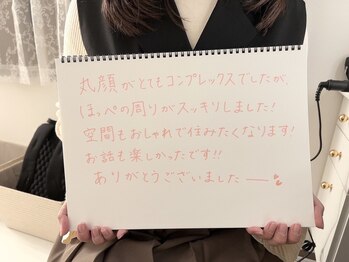 丸顔がとてもコンプレックスでしたが、
ほっぺの周りがスッキリしました!
空間もおしゃれで住みたくなります!
お話も楽しかったです!!
ありがとうございました——